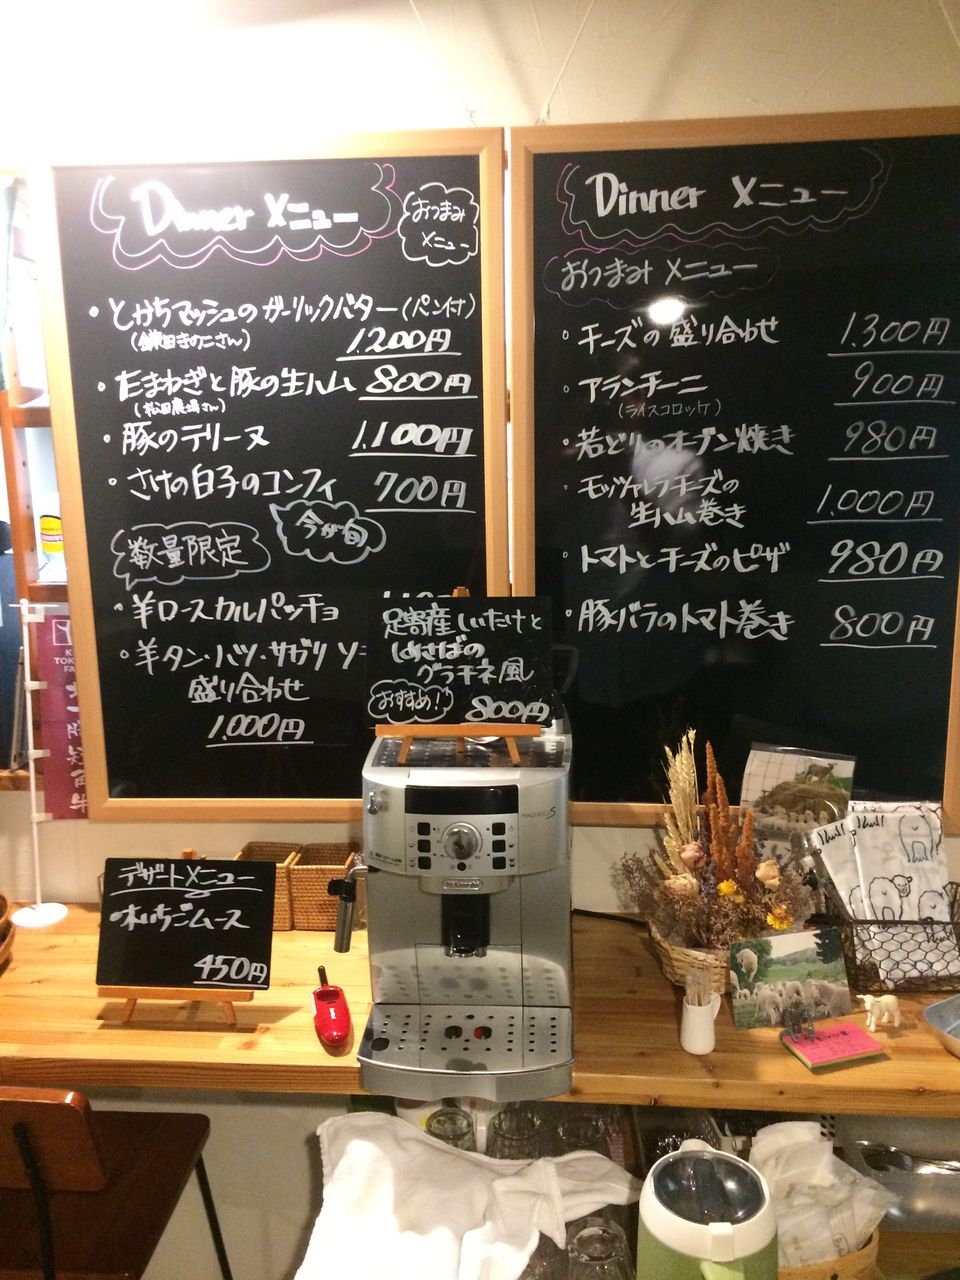 Dinner メニュー
おつまみ
メニュー
・とかちマッシュのガーリックバター(パン付)
(鎌田きのこさん)
1,200円
・たまねぎと豚の生ハム 800円
(松田農場さん)
・豚のテリーヌ 1,100円
・さけの白子のコンフィ 700円
今が旬
数量限定
・羊ロースカルパッチョ
・羊タン・ハツ・サガリ ソー
盛り合わせ
1,000円
Dinner メニュー
おつまみ メニュー
・チーズの盛り合わせ 1,300円
・アランチーニ 900円
(ライスコロッケ)
・若どりのオーブン焼き 980円
・モッツァレラチーズの
生ハム巻き 1,000円
・トマトとチーズのピザ 980円
・豚バラのトマト巻き 800円
足寄産しいたけと
しめさばの
グラチネ風
おすすめ! 800円
デザートメニュー
いちごムース
450円
MAGNIFICA S
DeLonghi
十勝短角牛